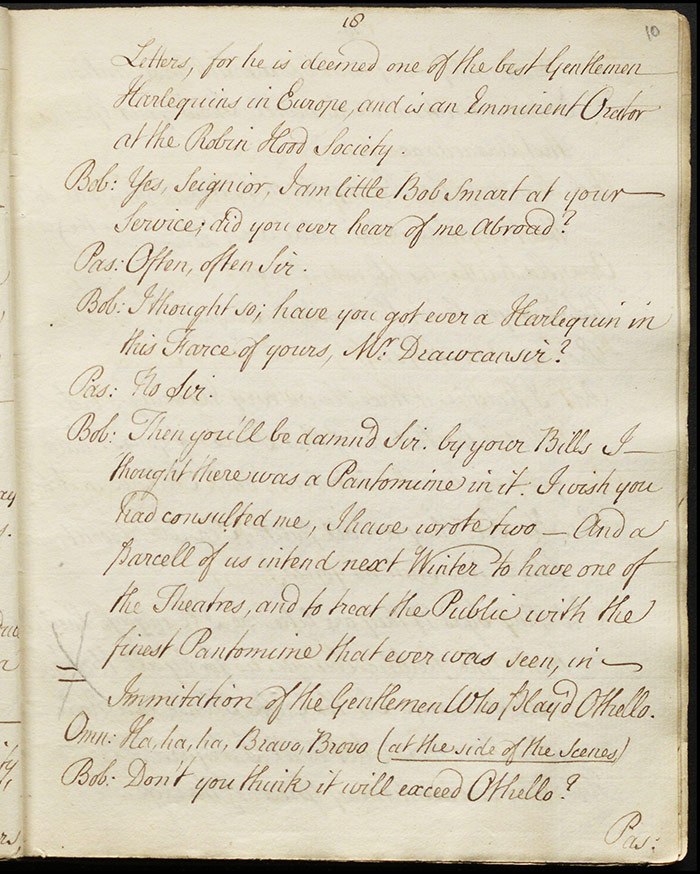 18
10
Letters, for he is deemed one of the best Gentlemen
Harlequins in Europe, and is an Emminent Orator
at the Robin Hood Society.
Bob: Yes, Seignior, I am little Bob Smart at your
Service; did you ever hear of me Abroad?
Pas: Often, often Sir.
Bob: I thought so; have you got ever a Harlequin in
this Farce of yours, Mr. Drawcansir?
Pas: No Sir.
Bob: Then you'll be damn'd Sir. by your Bills I
thought there was a Pantomime in it. I wish you
had consulted me, I have wrote two — And a
Parcell of us intend next Winter to have one of
the Theatres, and to treat the Public with the
finest Pantomime that ever was seen, in
Immitation of the Gentlemen Who Play'd Othello.
Omn: Ha, ha, ha, Bravo, Brovo (at the side of the Scenes)
Bob: Don't you think it will exceed Othello?
Pas: